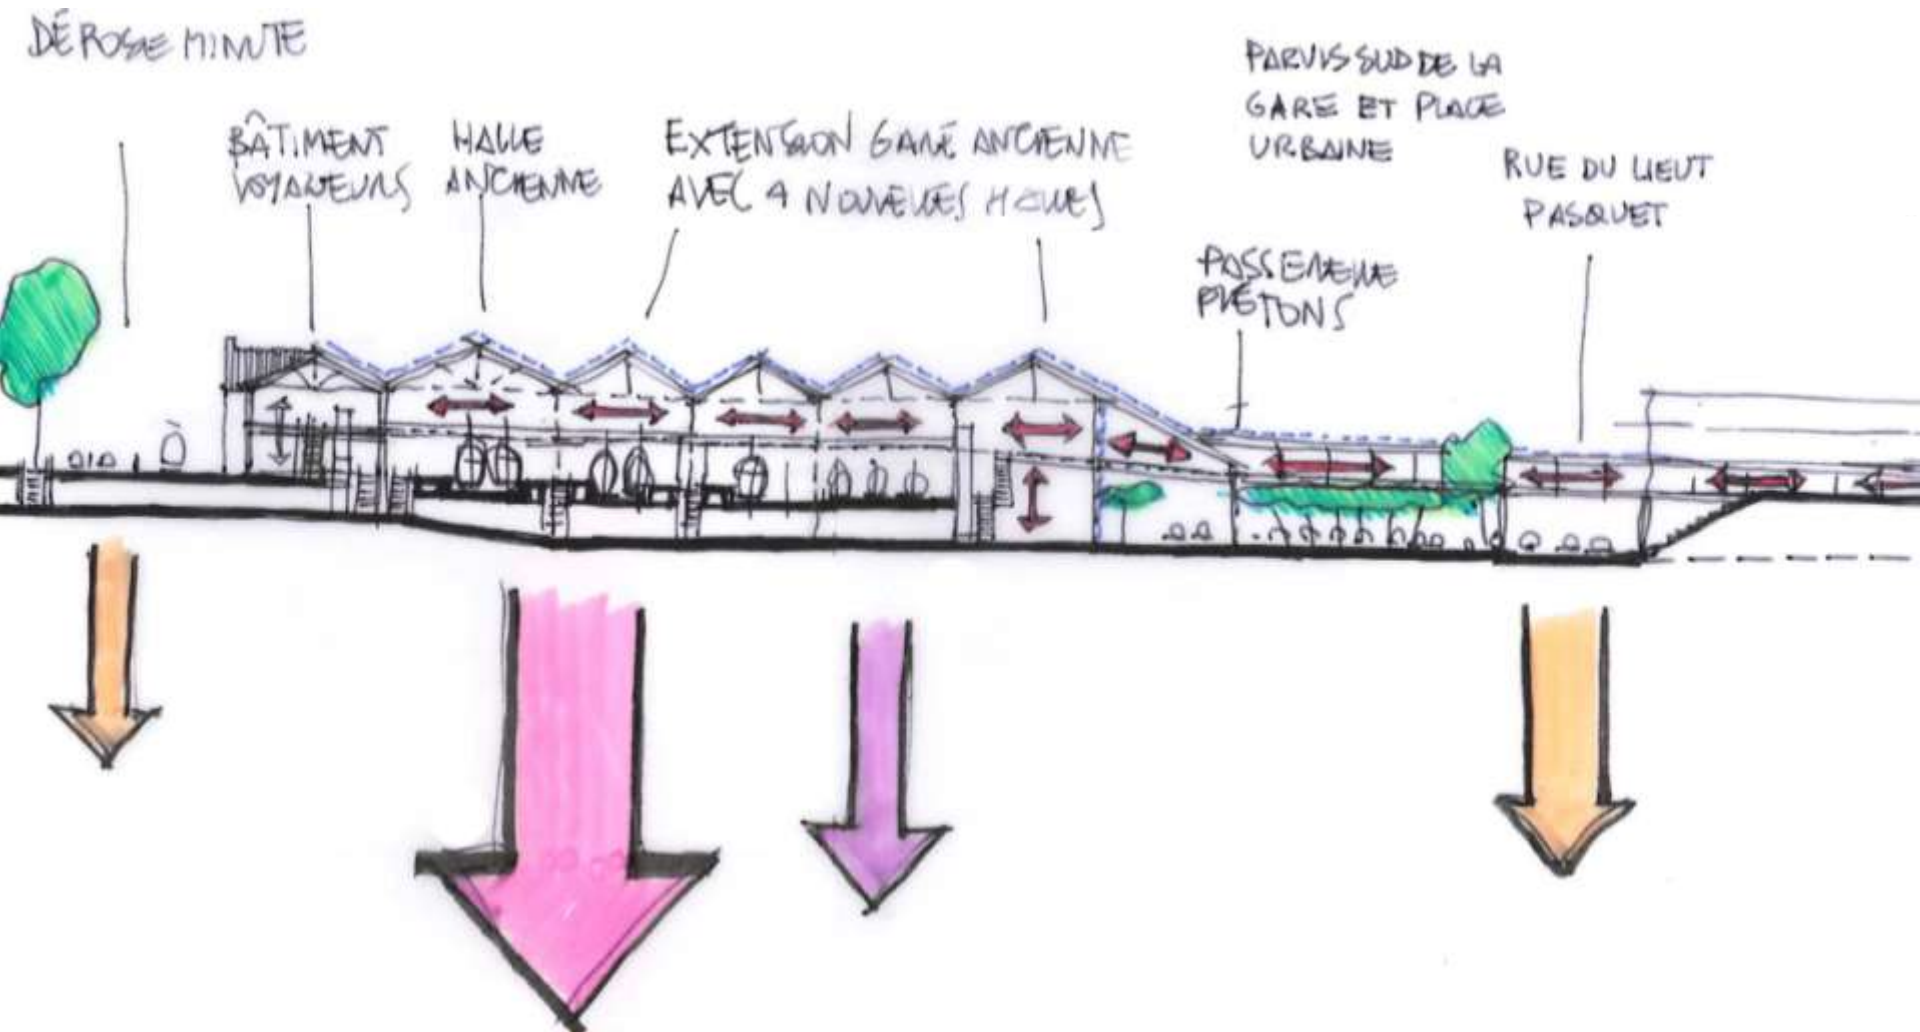 DÉPOSE MINUTE
BÂTIMENT
VOYAGEURS
HALLE
ANCIENNE
EXTENSION GARE ANCIENNE
AVEC 4 NOUVELLES HALLES
PARVIS SUD DE LA
GARE ET PLACE
URBAINE
RUE DU LIEUT
PASQUET
PASSERELLE
PIÉTONS